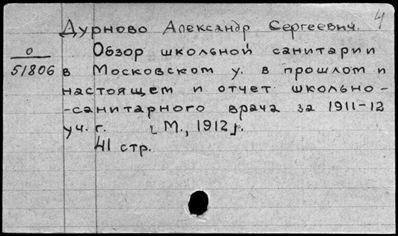 4
Дурново Александр Сергеевич.
О
51806
Обзор школьной санитарии
в Московском у. в прошлом и
настоящем и отчет школьно-
-санитарного врача за 1911-12
уч. г. [М., 1912].
41 стр.